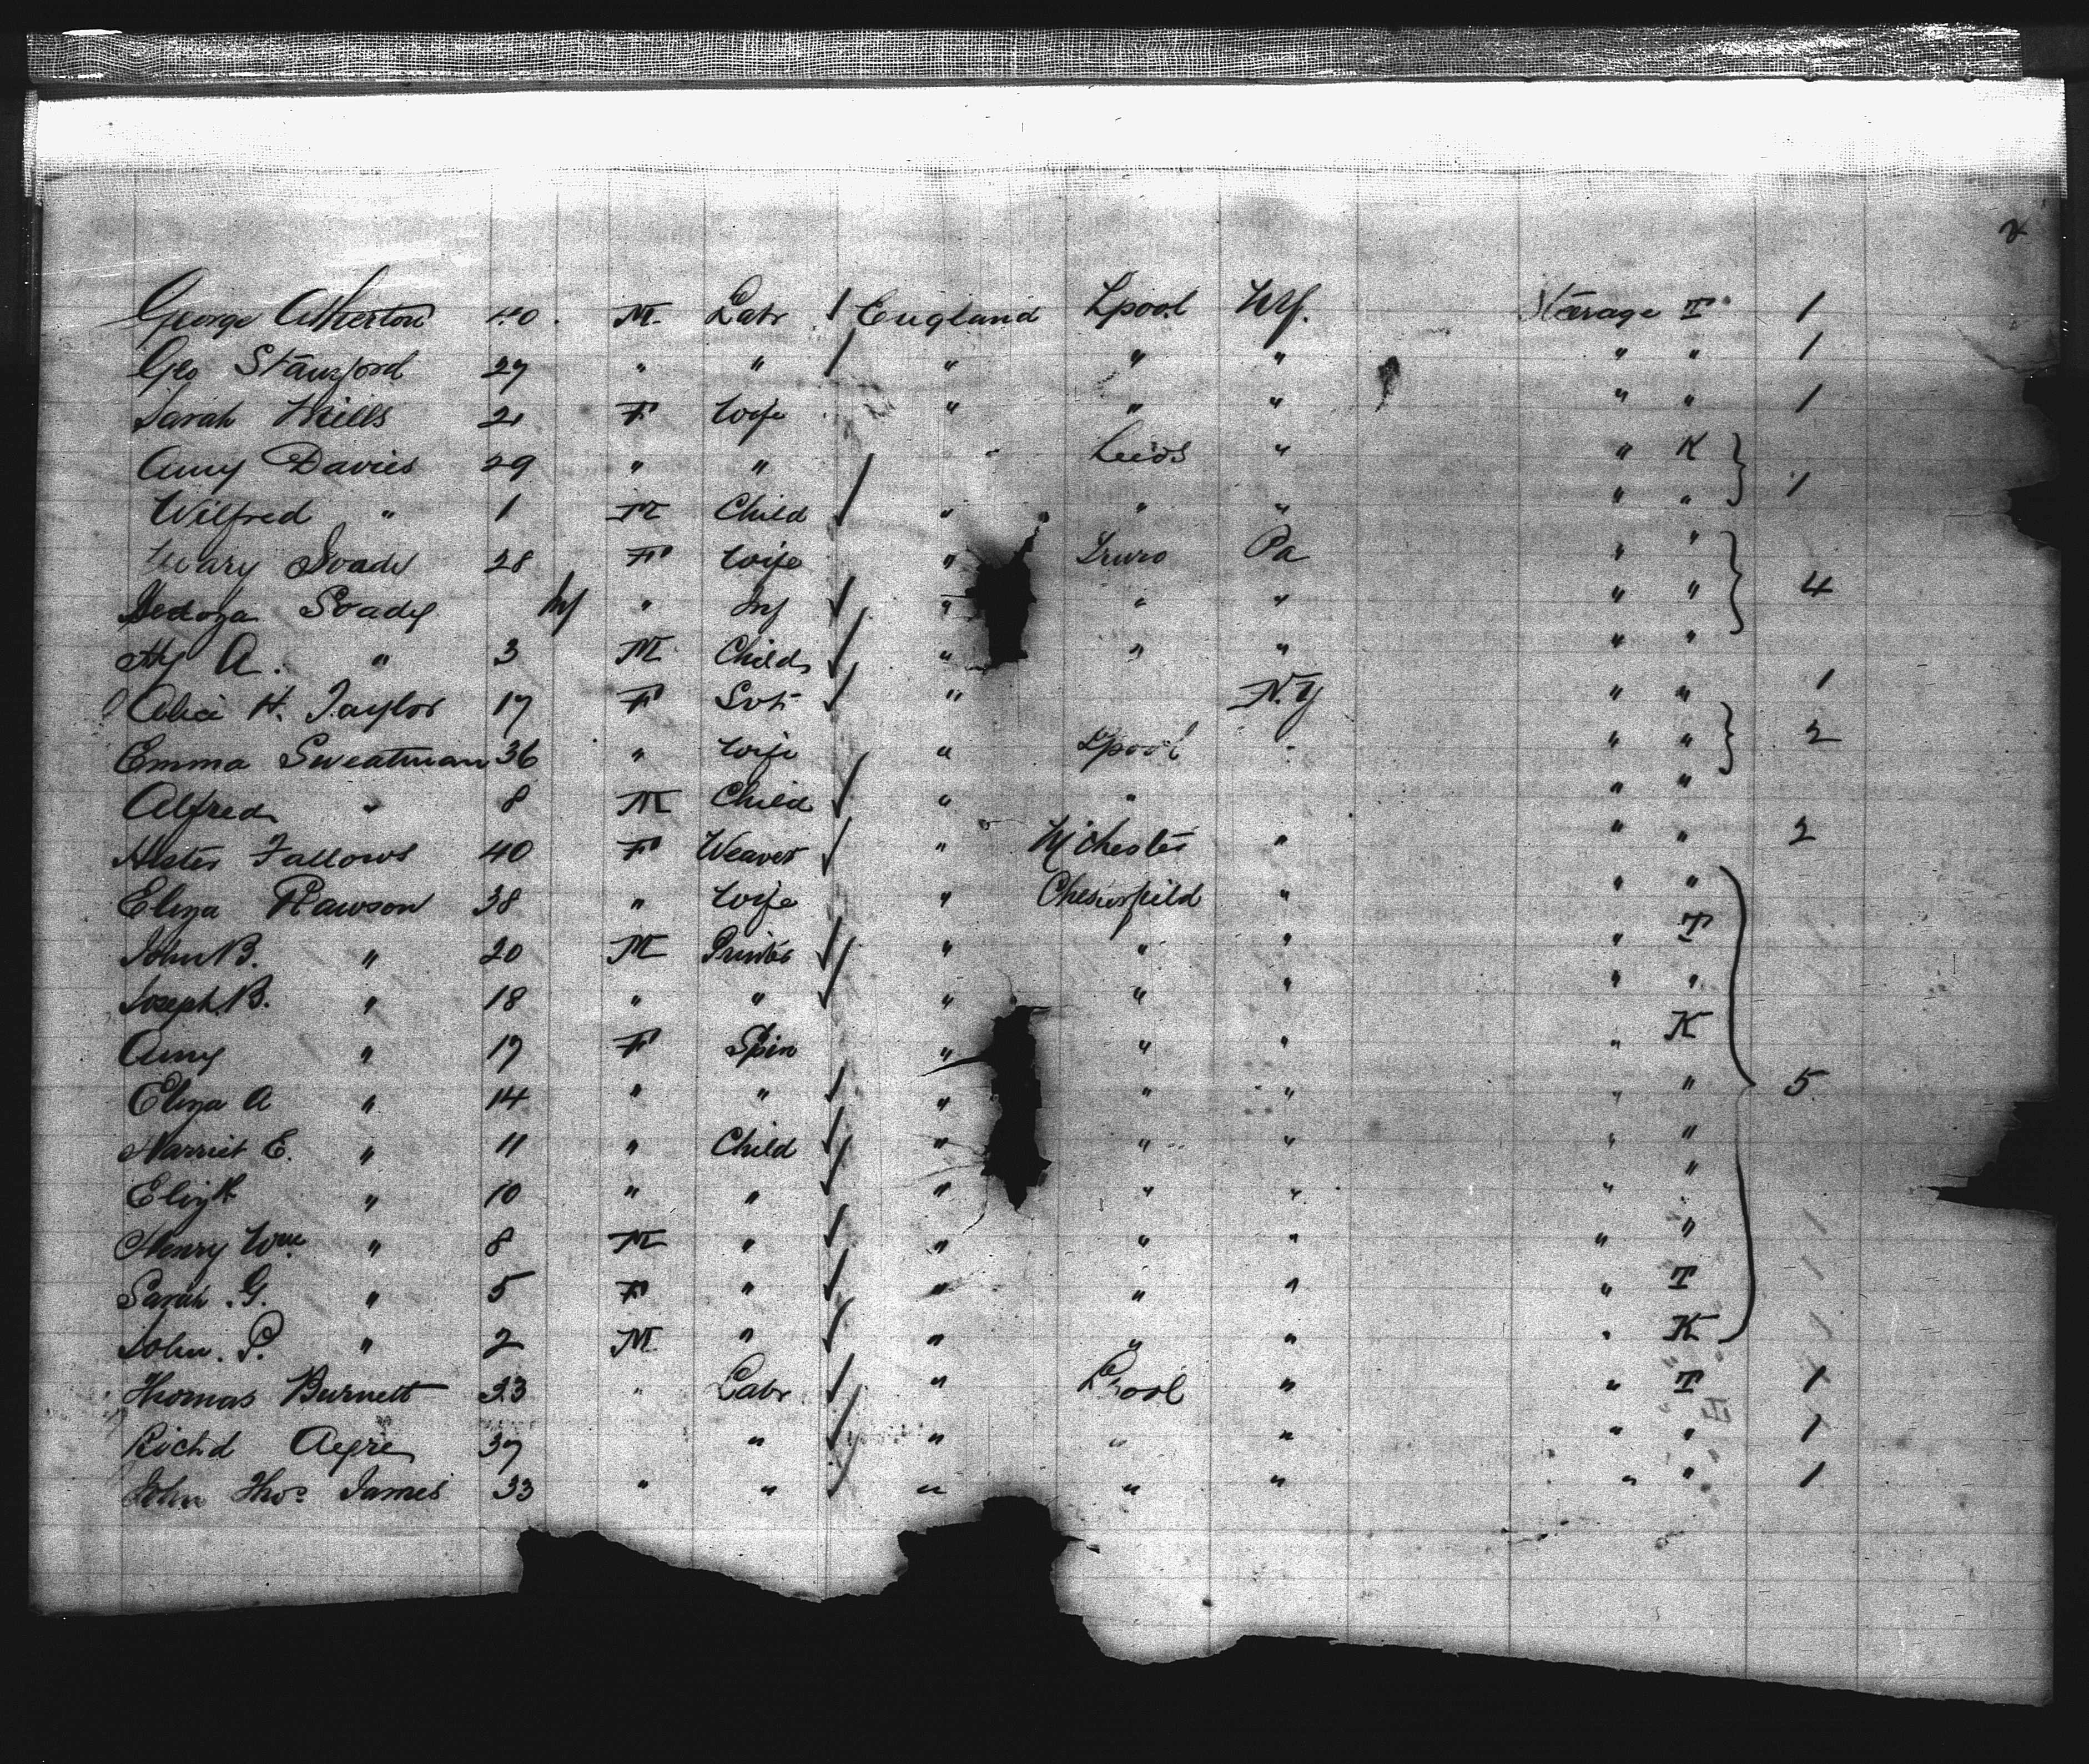 2
George Atherton 40 M. Labr England Lpool NY. Steerage T 1
Geo Stanford 27 " " " " " " " 1
Sarah Mills 21 F Wife " " " " " 1
Amy Davies 29 " " " Leeds " " K
Wilfred " 1 M Child " " " " " 1
Mary Soady 28 F Wife " Truro Pa " "
Soady Inf " Inf " " " " " 4
Hy A. " 3 M Child " " " " "
Alice H. Taylor 17 F Svt " N.Y " " 1
Emma Sweatman 36 " Wife " Lpool " " " 2
Alfred " 8 M Child " " " "
Hester Fallows 40 F Weaver " M'chester " " " 2
Eliza Rawson 38 " Wife " Chesterfield " " "
John B. " 20 M Printer " " " " T
Joseph B. " 18 " " " " " " "
Amy " 17 F Spin " " " " K
Eliza A " 14 " " " " " " " 5
Harriet E. " 11 " Child " " " " "
Elizth " 10 " " " " " " "
Henry Wm " 8 M " " " " " "
Sarah G. " 5 F " " " " " T
John. P. " 2 M " " " " " K
Thomas Burnett 23 " Labr " Lpool " " T 1
Richd Ayre 37 " " " " " " 1
John Thos James 33 " " " " " " " 1